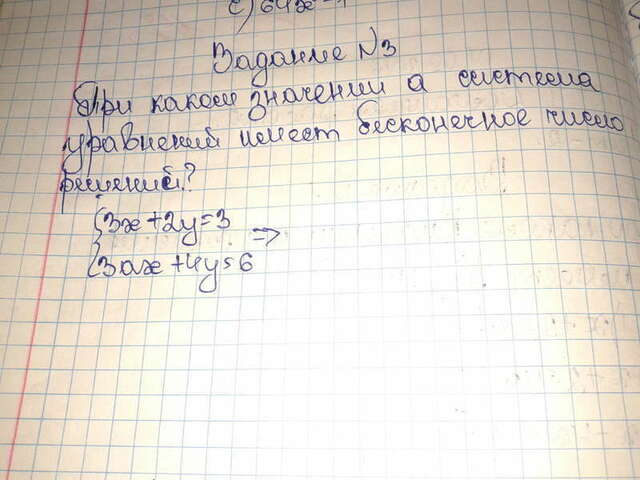 с) 64x
Задание N3
При каком значении а система
уравнений имеет бесконечное число
решений?
{3x+2y=3 =>
{3ax+4y=6